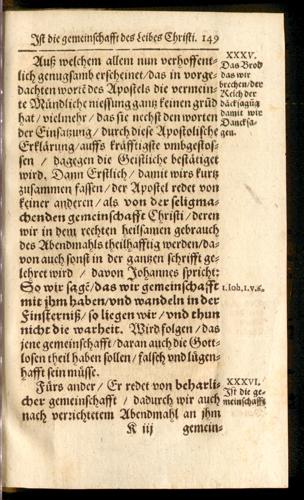 Ist die gemeinschafft des Leibes Christi. 149
Auß welchem allem nun verhoffent-
lich genugsamb erscheinet / das in vorge-
dachten wortẽ des Apostels die vermein-
te Mündliche niessung gantz keinen grũd
hat / vielmehr / das sie nechst den worten
der Einsatzung / durch diese Apostolische
Erklärung / auffs kräfftigste vmbgestos-
sen / dagegen die Geistliche bestätiget
wird. Dann Erstlich / damit wirs kurtz
zusammen fassen / der Apostel redet von
keiner anderen / als von der seligma-
chenden gemeinschafft Christi / deren
wir in dem rechten heilsamen gebrauch
des Abendmahls theilhafftig werden / da-
von auch sonst in der gantzen schrifft ge-
lehret wird / davon Johannes spricht:
So wir sagẽ / das wir gemeinschafft
mit jhm haben / vnd wandeln in der
Einsterniß / so liegen wir / vnd thun
nicht die warheit. Wird folgen / das
jene gemeinschafft / daran auch die Gott-
losen theil haben sollen / falsch vnd lügen-
hafft sein müsse.
Fürs ander / Er redet von beharli-
cher gemeinschafft / dadurch wir auch
nach verzichtetem Abendmahl an jhm
K iij gemein-
XXXV.
Das Brod
das wir
brechen / der
Kelch der
däcksagũg
damit wir
Dancksa-
gen.
1. Ioh. 1. v. 6.
XXXVI.
Ist die ge-
meinschafft